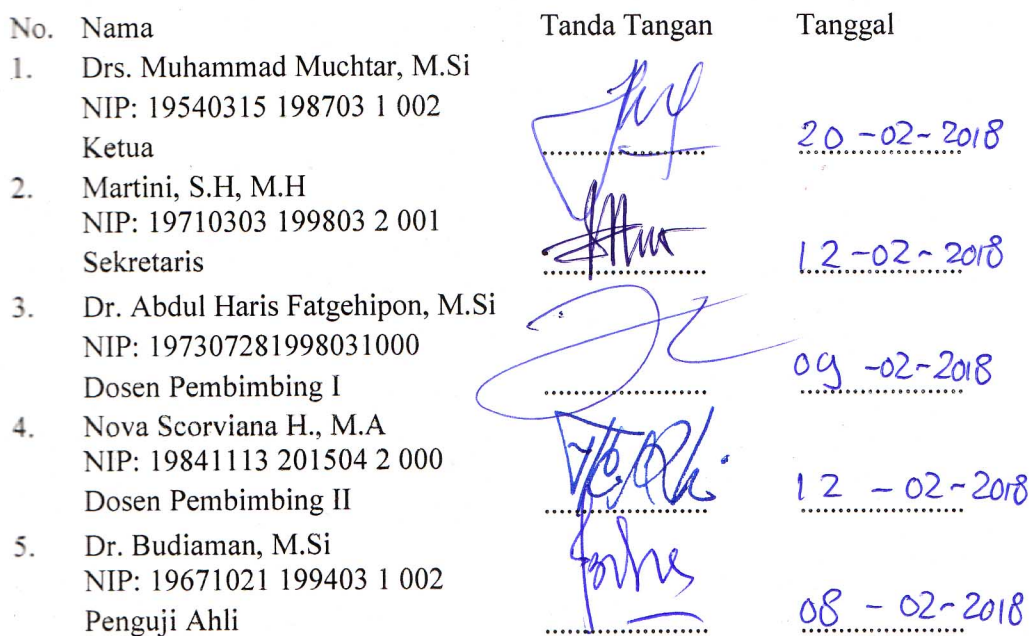 No. Nama Tanda Tangan Tanggal
1. Drs. Muhammad Muchtar, M.Si
NIP: 19540315 198703 1 002
Ketua 20-02-2018
2. Martini, S.H, M.H
NIP: 19710303 199803 2 001
Sekretaris 12-02-2018
3. Dr. Abdul Haris Fatgehipon, M.Si
NIP: 197307281998031000
Dosen Pembimbing I 09-02-2018
4. Nova Scorviana H., M.A
NIP: 19841113 201504 2 000
Dosen Pembimbing II 12-02-2018
5. Dr. Budiaman, M.Si
NIP: 19671021 199403 1 002
Penguji Ahli 08-02-2018